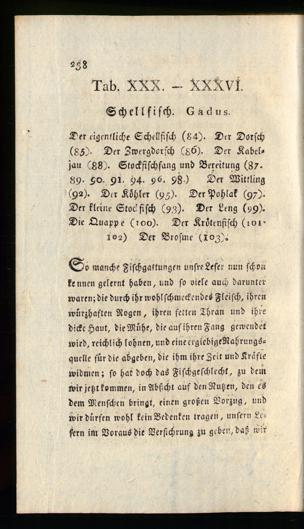 238
Tab. XXX. — XXXVI.
Schellfisch. Gadus.
Der eigentliche Schellfisch (84). Der Dorsch
(85). Der Zwergdorsch (86). Der Kabel-
jau (88). Stockfischfang und Bereitung (87.
89. 90. 91. 94. 96. 98.) Der Wittling
(92). Der Köhler (95). Der Pohlak (97).
Der kleine Stockfisch (93). Der Leng (99).
Die Quappe (100). Der Krötenfisch (101-
102) Der Brosme (103).
So manche Fischgattungen unsre Leser nun schon
kennen gelernt haben, und so viele auch darunter
waren; die durch ihr wohlschmeckendes Fleisch, ihren
würzhaften Rogen, ihren fetten Thran und ihre
dicke Haut, die Mühe, die auf ihren Fang gewendet
wird, reichlich lohnen, und eine ergiebige Nahrungs-
quelle für die abgeben, die ihm ihre Zeit und Kräfte
widmen; so hat doch das Fischgeschlecht, zu dem
wir jetzt kommen, in Absicht auf den Nutzen, den es
dem Menschen bringt, einen großen Vorzug, und
wir dürfen wohl kein Bedenken tragen, unsern Le-
sern im Voraus die Versichrung zu geben, daß wir